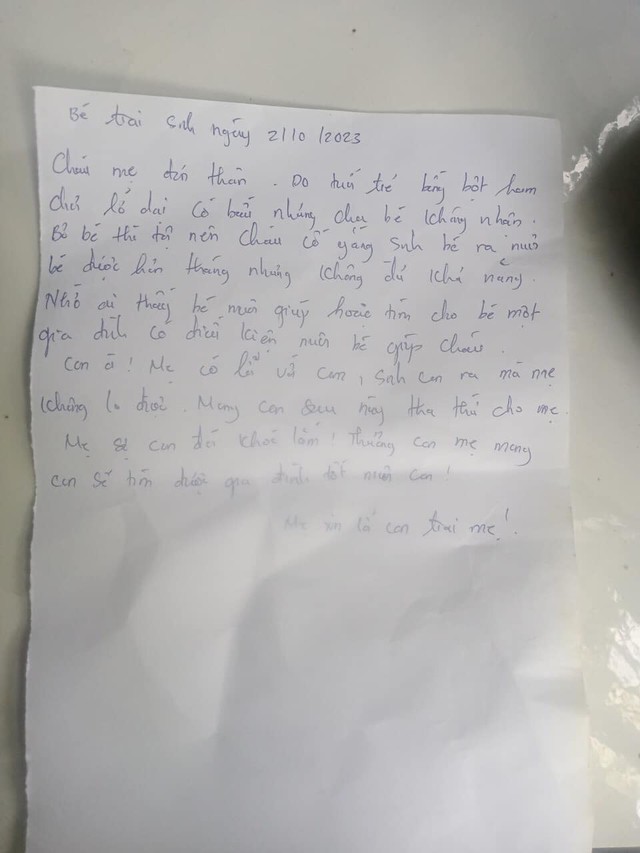 Bé trai sinh ngày 2/10/2023
Cháu mẹ đơn thân. Do tuổi trẻ bồng bột ham
chơi lố dại có bầu nhưng cha bé không nhận.
Bỏ bé thì tội nên cháu cố gắng sinh bé ra nuôi
bé được hơn tháng nhưng không đủ khả năng.
Nhờ ai thấy bé nuôi giúp hoặc tìm cho bé một
gia đình có điều kiện nuôi bé giúp cháu.
Con à! Mẹ có lỗi với con, sinh con ra mà mẹ
không lo được. Mong con sau này tha thứ cho mẹ.
Mẹ sợ con đói khóc lắm! Thương con mẹ mong
con sẽ tìm được gia đình tốt nuôi con!
Mẹ xin lỗi con trai mẹ!